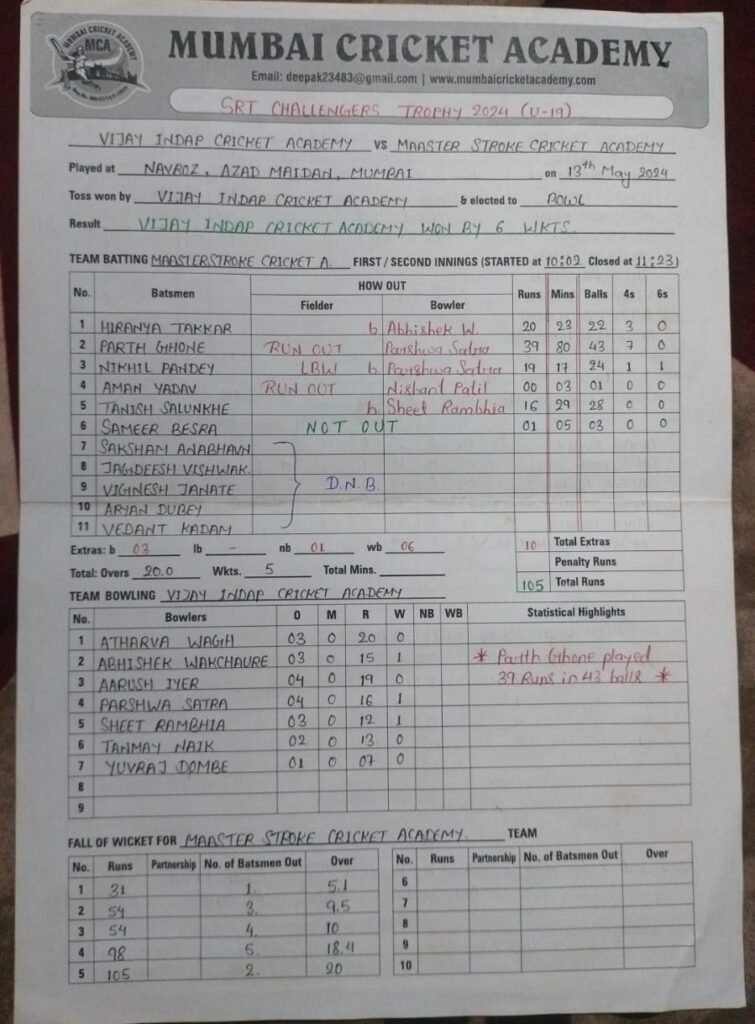 MUMBAI CRICKET ACADEMY
MCA
MUMBAI CRICKET ACADEMY
Email: deepak23483@gmail.com | www.mumbaicricketacademy.com
SRT CHALLENGERS TROPHY 2024 (U-19)
VIJAY INDAP CRICKET ACADEMY VS MAASTER STROKE CRICKET ACADEMY
Played at NAVROZ, AZAD MAIDAN, MUMBAI on 13th May 2024
Toss won by VIJAY INDAP CRICKET ACADEMY & elected to BOWL
Result VIJAY INDAP CRICKET ACADEMY WON BY 6 WKTS.
TEAM BATTING MAASTERSTROKE CRICKET A. FIRST / SECOND INNINGS (STARTED at 10:02 Closed at 11:23)
No. Batsmen HOW OUT Runs Mins Balls 4s 6s
Fielder Bowler
1 HIRANYA TAKKAR b Abhishek W. 20 23 22 3 0
2 PARTH GHONE RUN OUT Parshwa Satra 39 80 43 7 0
3 NIKHIL PANDEY LBW b Parshwa Satra 19 17 24 1 1
4 AMAN YADAV RUN OUT Nishant Patil 00 03 01 0 0
5 TANISH SALUNKHE b Sheet Rambhia 16 29 28 0 0
6 SAMEER BESRA NOT OUT 01 05 03 0 0
7 SAKSHAM ANABHAVN
8 JAGDEESH VISHWAK.
9 VIGINESH JANATE D.N.B.
10 ARYAN DUBEY
11 VEDANT KADAM
Extras: b 03 lb - nb 01 wb 06 10 Total Extras
Penalty Runs
Total: Overs 20.0 Wkts. 5 Total Mins. 105 Total Runs
TEAM BOWLING VIJAY INDAP CRICKET ACADEMY
No. Bowlers O M R W NB WB Statistical Highlights
1 ATHARVA WAGH 03 0 20 0
2 ABHISHEK WAKCHAURE 03 0 15 1 * Parth Ghone played
3 AARUSH IYER 04 0 19 0 39 Runs in 43 balls *
4 PARSHWA SATRA 04 0 16 1
5 SHEET RAMBHIA 03 0 12 1
6 TANMAY NAIK 02 0 13 0
7 YUVRAJ DOMBE 01 0 07 0
8
9
FALL OF WICKET FOR MAASTER STROKE CRICKET ACADEMY. TEAM
No. Runs Partnership No. of Batsmen Out Over No. Runs Partnership No. of Batsmen Out Over
1 31 1. 5.1 6
2 54 3. 9.5 7
3 54 4. 10 8
4 98 5. 18.4 9
5 105 2. 20 10